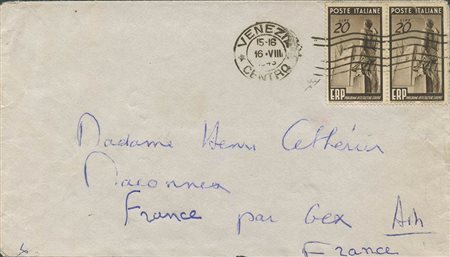 POSTE ITALIANE POSTE ITALIANE
LIRE 20 LIRE 20
VENEZIA
15-16
16·VIII
1949
CENTRO
ERP ERP
Madame Henri
France par Gex Ain
France